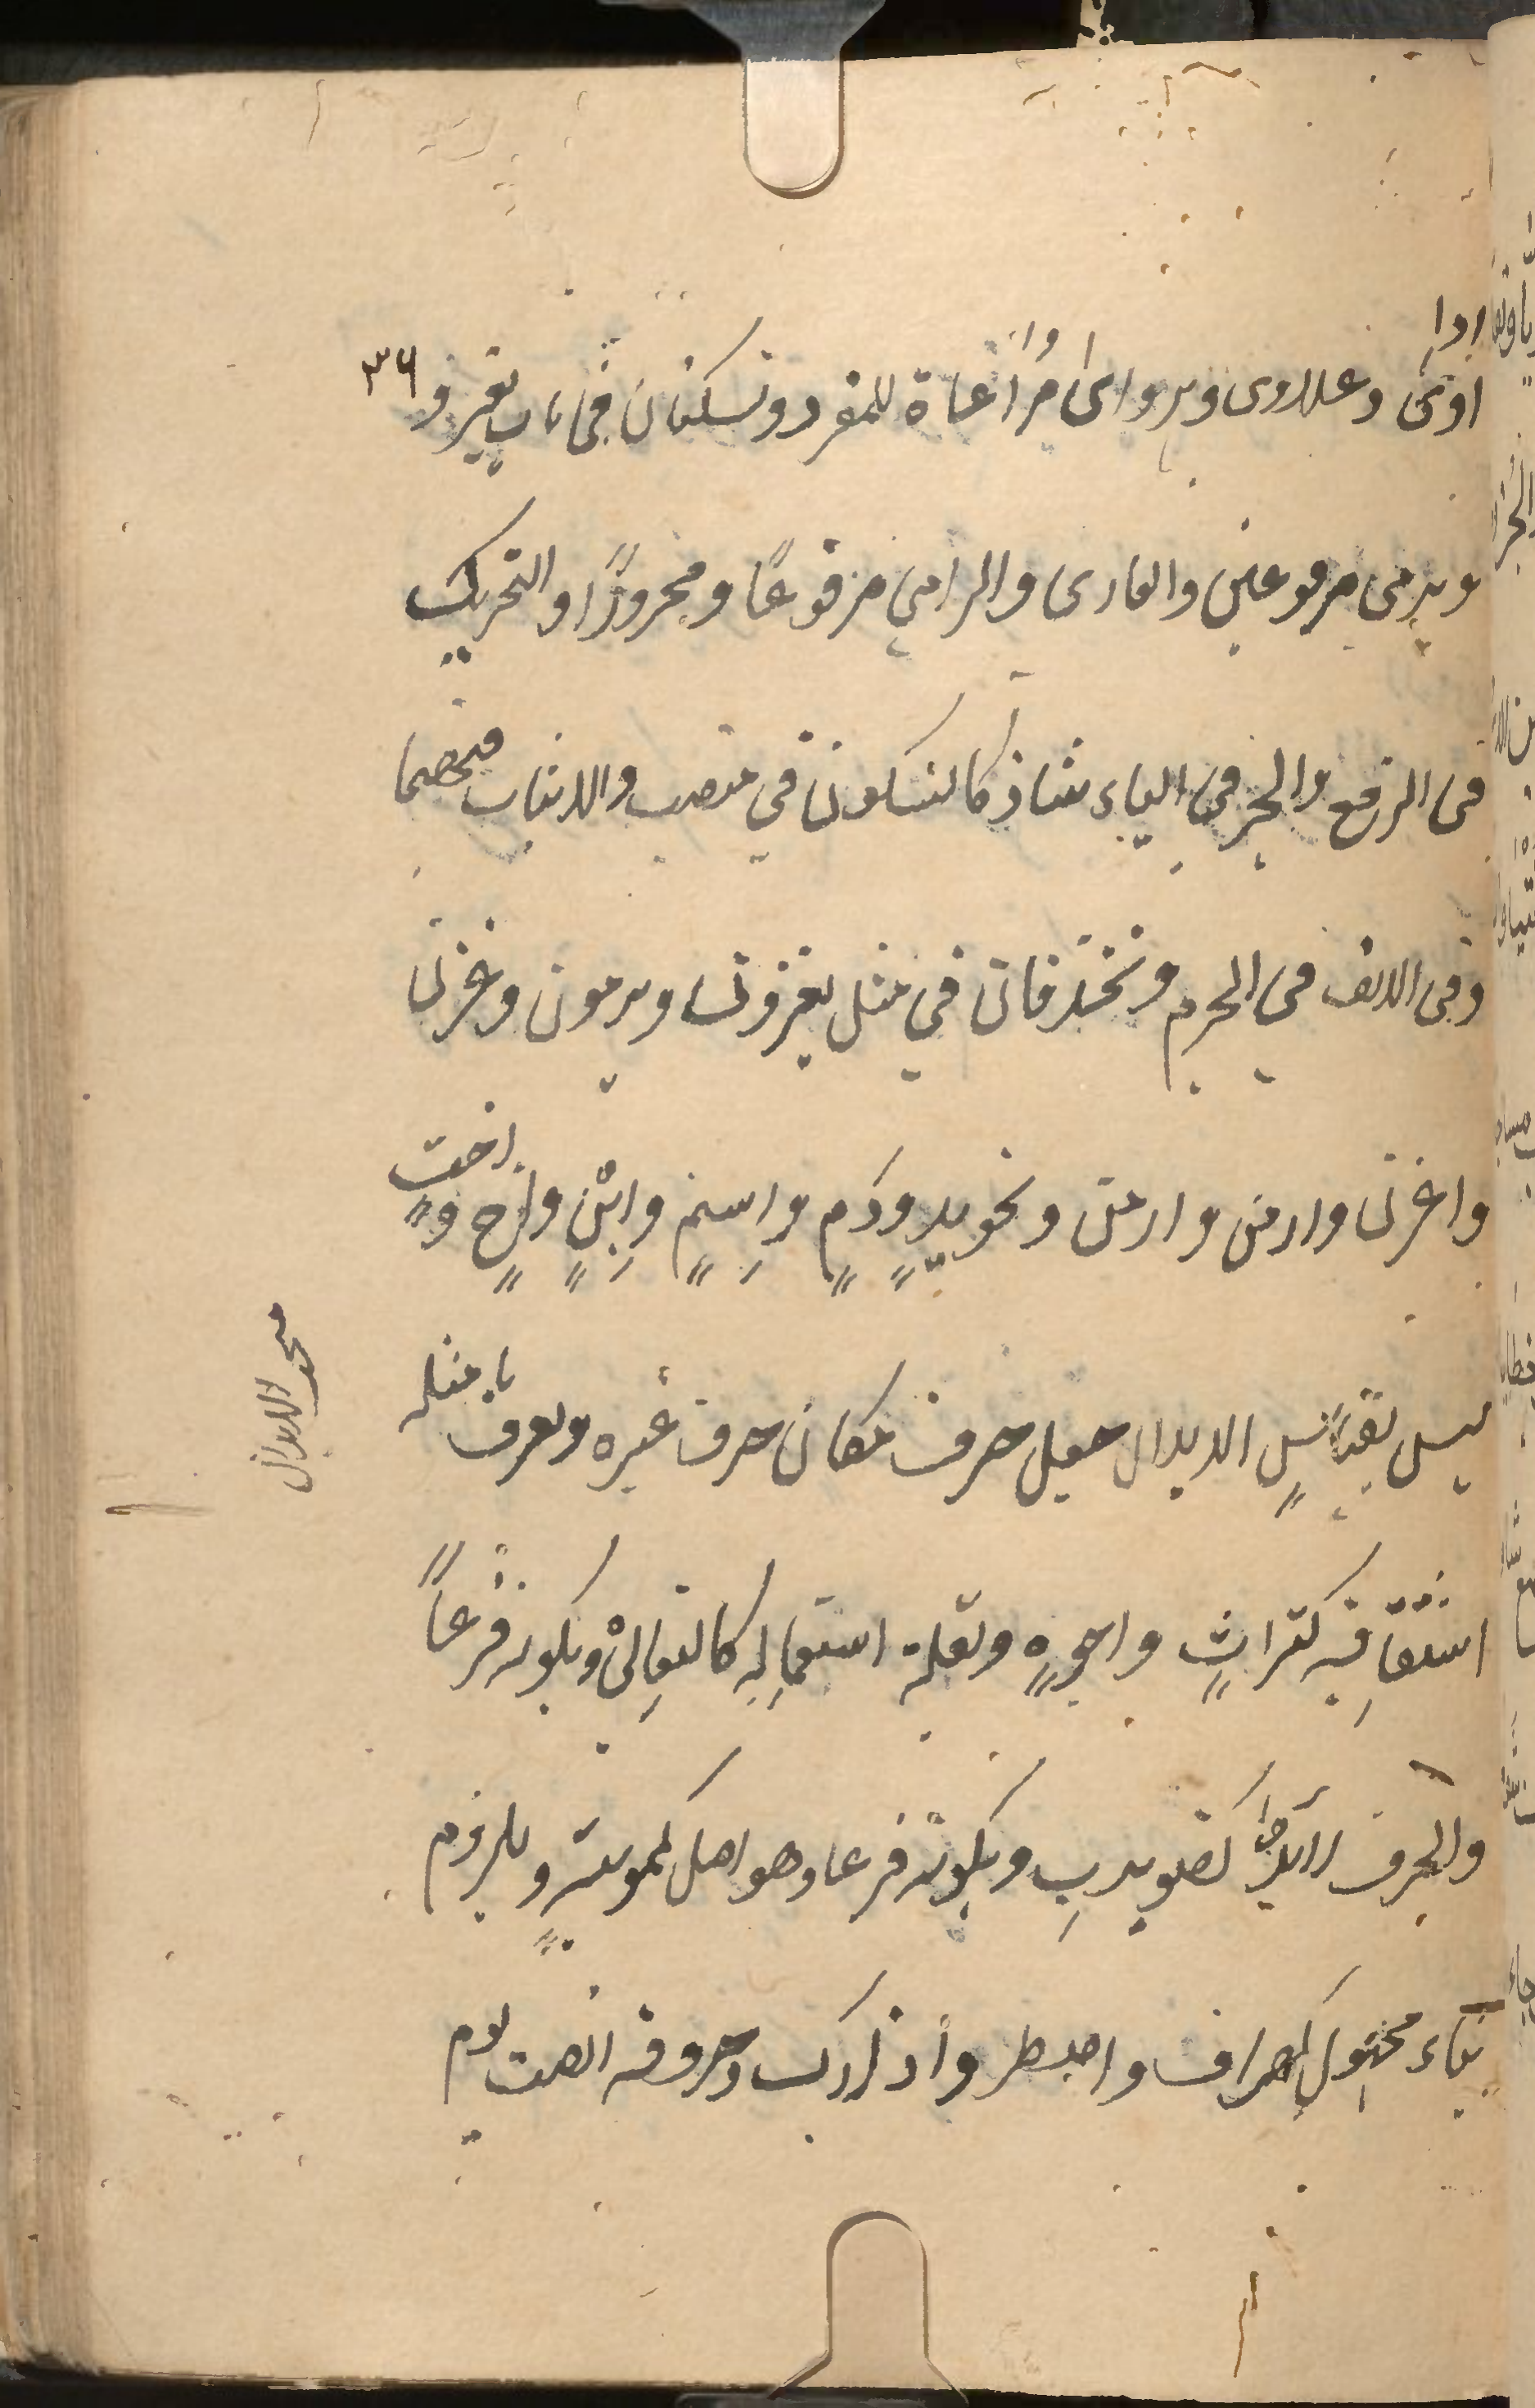 اداوى وعلاوى وهراوى مراعاة للمفرد وتسكنان فى باب يغزو ٣٦
ويرمى مرفوعين والغازى والرامي مرفوعًا ومجرورًا والتحريك
فى الرفع والجر فى الياء شاذ كالسكون في النصب والاثبات فيهما
وفى الالف في الجزم وتحذفان في مثل يغزون ويرمون وغزن
واغزن وارمن وارمن ونحو يدٍ ودمٍ واسمٍ وابنٍ واخٍ واختٍ
ليس بقياسٍ الابدال جعل حرف مكان حرف غيره ويعرف بامثلة
اشتقاقه كتراثٍ واجوهٍ وبقلة استعماله كالثعالى وبكونه فرعًا
والحرف زائد كضويربِ وبكونه فرعا وهو اصل كمويهٍ وبلزوم
بناء مجهول كهراق واصطبر واداركَ وحروفه انصت يوم
محد الابدال